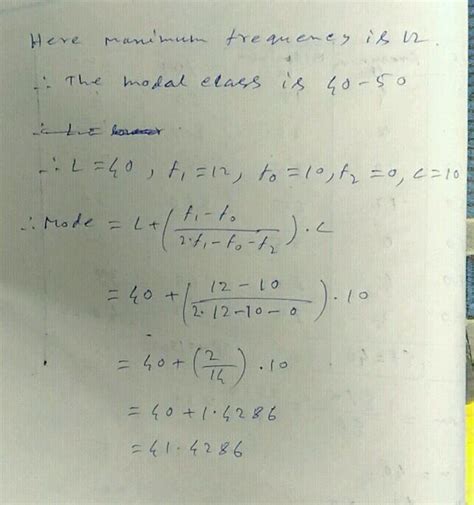 Here maximum frequency is 12.
∴ The modal class is 40-50
∴ L = lower
∴ L = 40, f₁ = 12, f₀ = 10, f₂ = 0, c = 10
∴ Mode = L + (f₁ - f₀ / 2·f₁ - f₀ - f₂) · c
= 40 + (12 - 10 / 2·12 - 10 - 0) · 10
= 40 + (2 / 14) · 10
= 40 + 1.4286
= 41.4286